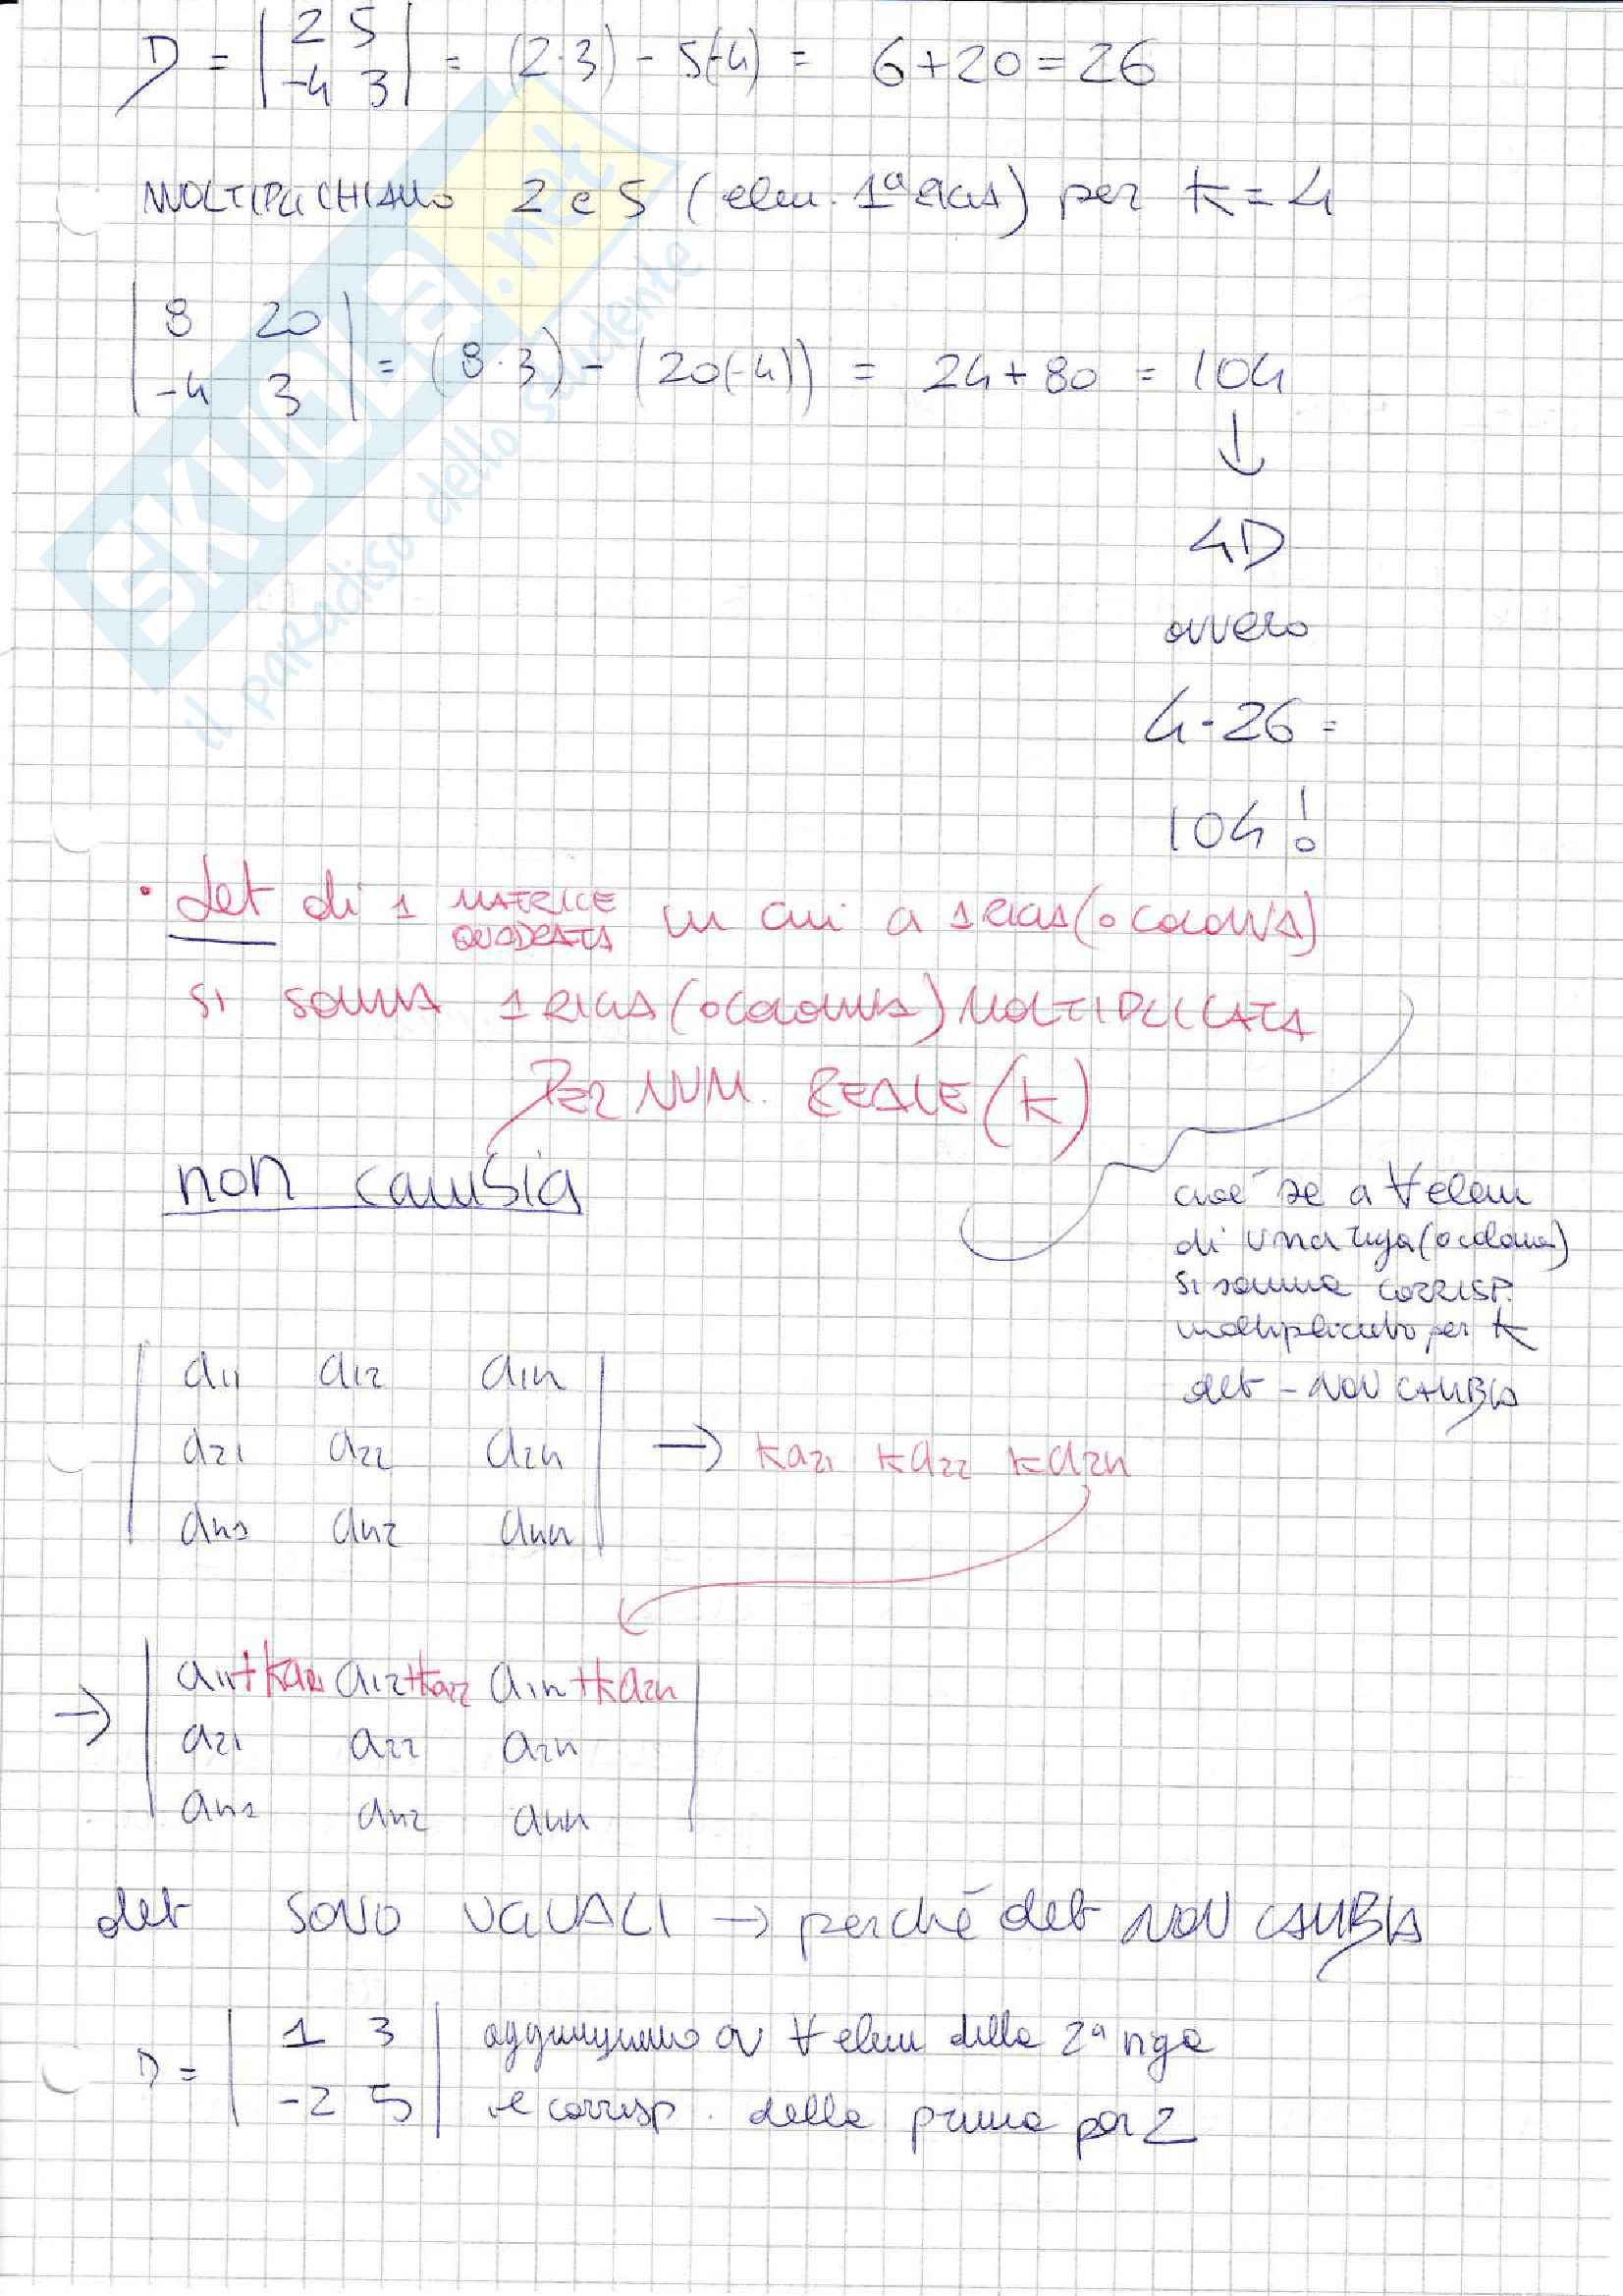 D = | 2 5 | = (2·3) - 5(-4) = 6+20 = 26
| -4 3 |
MOLTIPLICHIAMO 2 e 5 (elem. 1ª RIGA) per K=4
| 8 20 |
| -4 3 | = (8·3) - (20(-4)) = 24+80 = 104
↓
4D
ovvero
4·26=
104!
• det di 1 MATRICE QUADRATA in cui a 1 RIGA (o COLONNA)
SI SOMMA 1 RIGA (o COLONNA) MOLTIPLICATA
PER NUM. REALE (K)
non cambia
cioè se a ∀ elem
di una riga (o colonna)
si somma CORRISP.
moltiplicato per K
det - NON CAMBIA
| a11 a12 a1n |
| a21 a22 a2n | → Ka21 Ka22 Ka2n
| an1 an2 ann |
→ | a11+Ka21 a12+Ka22 a1n+Ka2n |
| a21 a22 a2n |
| an1 an2 ann |
det SONO UGUALI → perché det NON CAMBIA
D = | 1 3 | aggiungiamo a ∀ elem della 2ª riga
| -2 5 | il corrisp. della prima per 2
SKUOLA.net
il paradiso dello studente